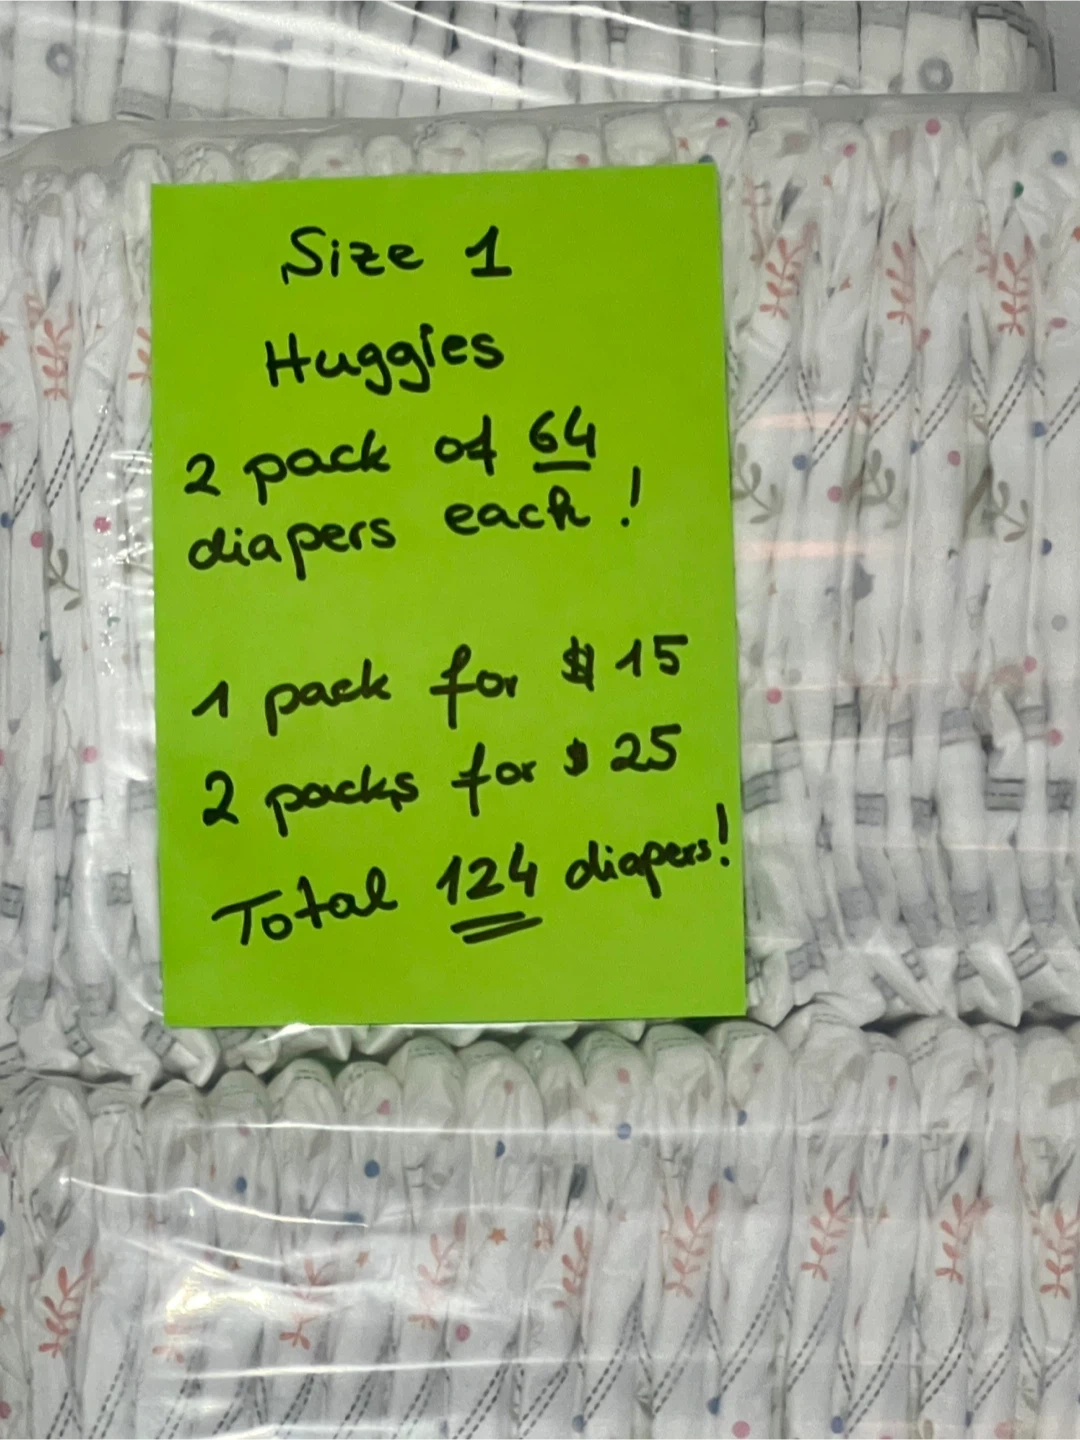 Size 1
Huggies
2 pack of 64
diapers each!
1 pack for $15
2 packs for $25
Total 124 diapers!